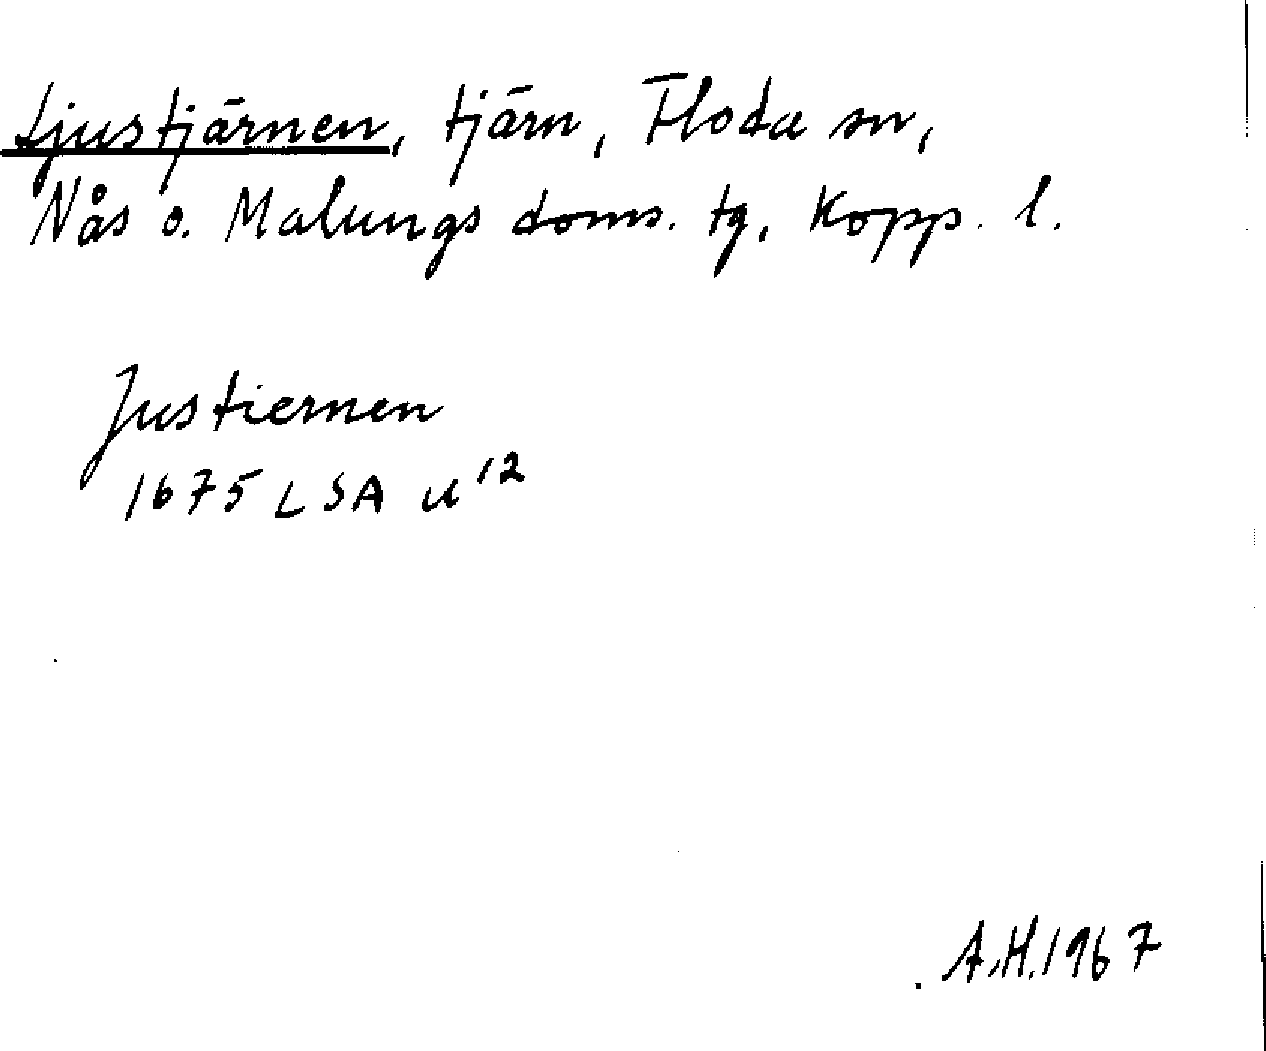 Ljustjärnen, tjärn, Floda sn,
Nås o. Malungs doms. tg, Kopp. l.
Justiernen
1675 LSA u 12
A.H. 1967